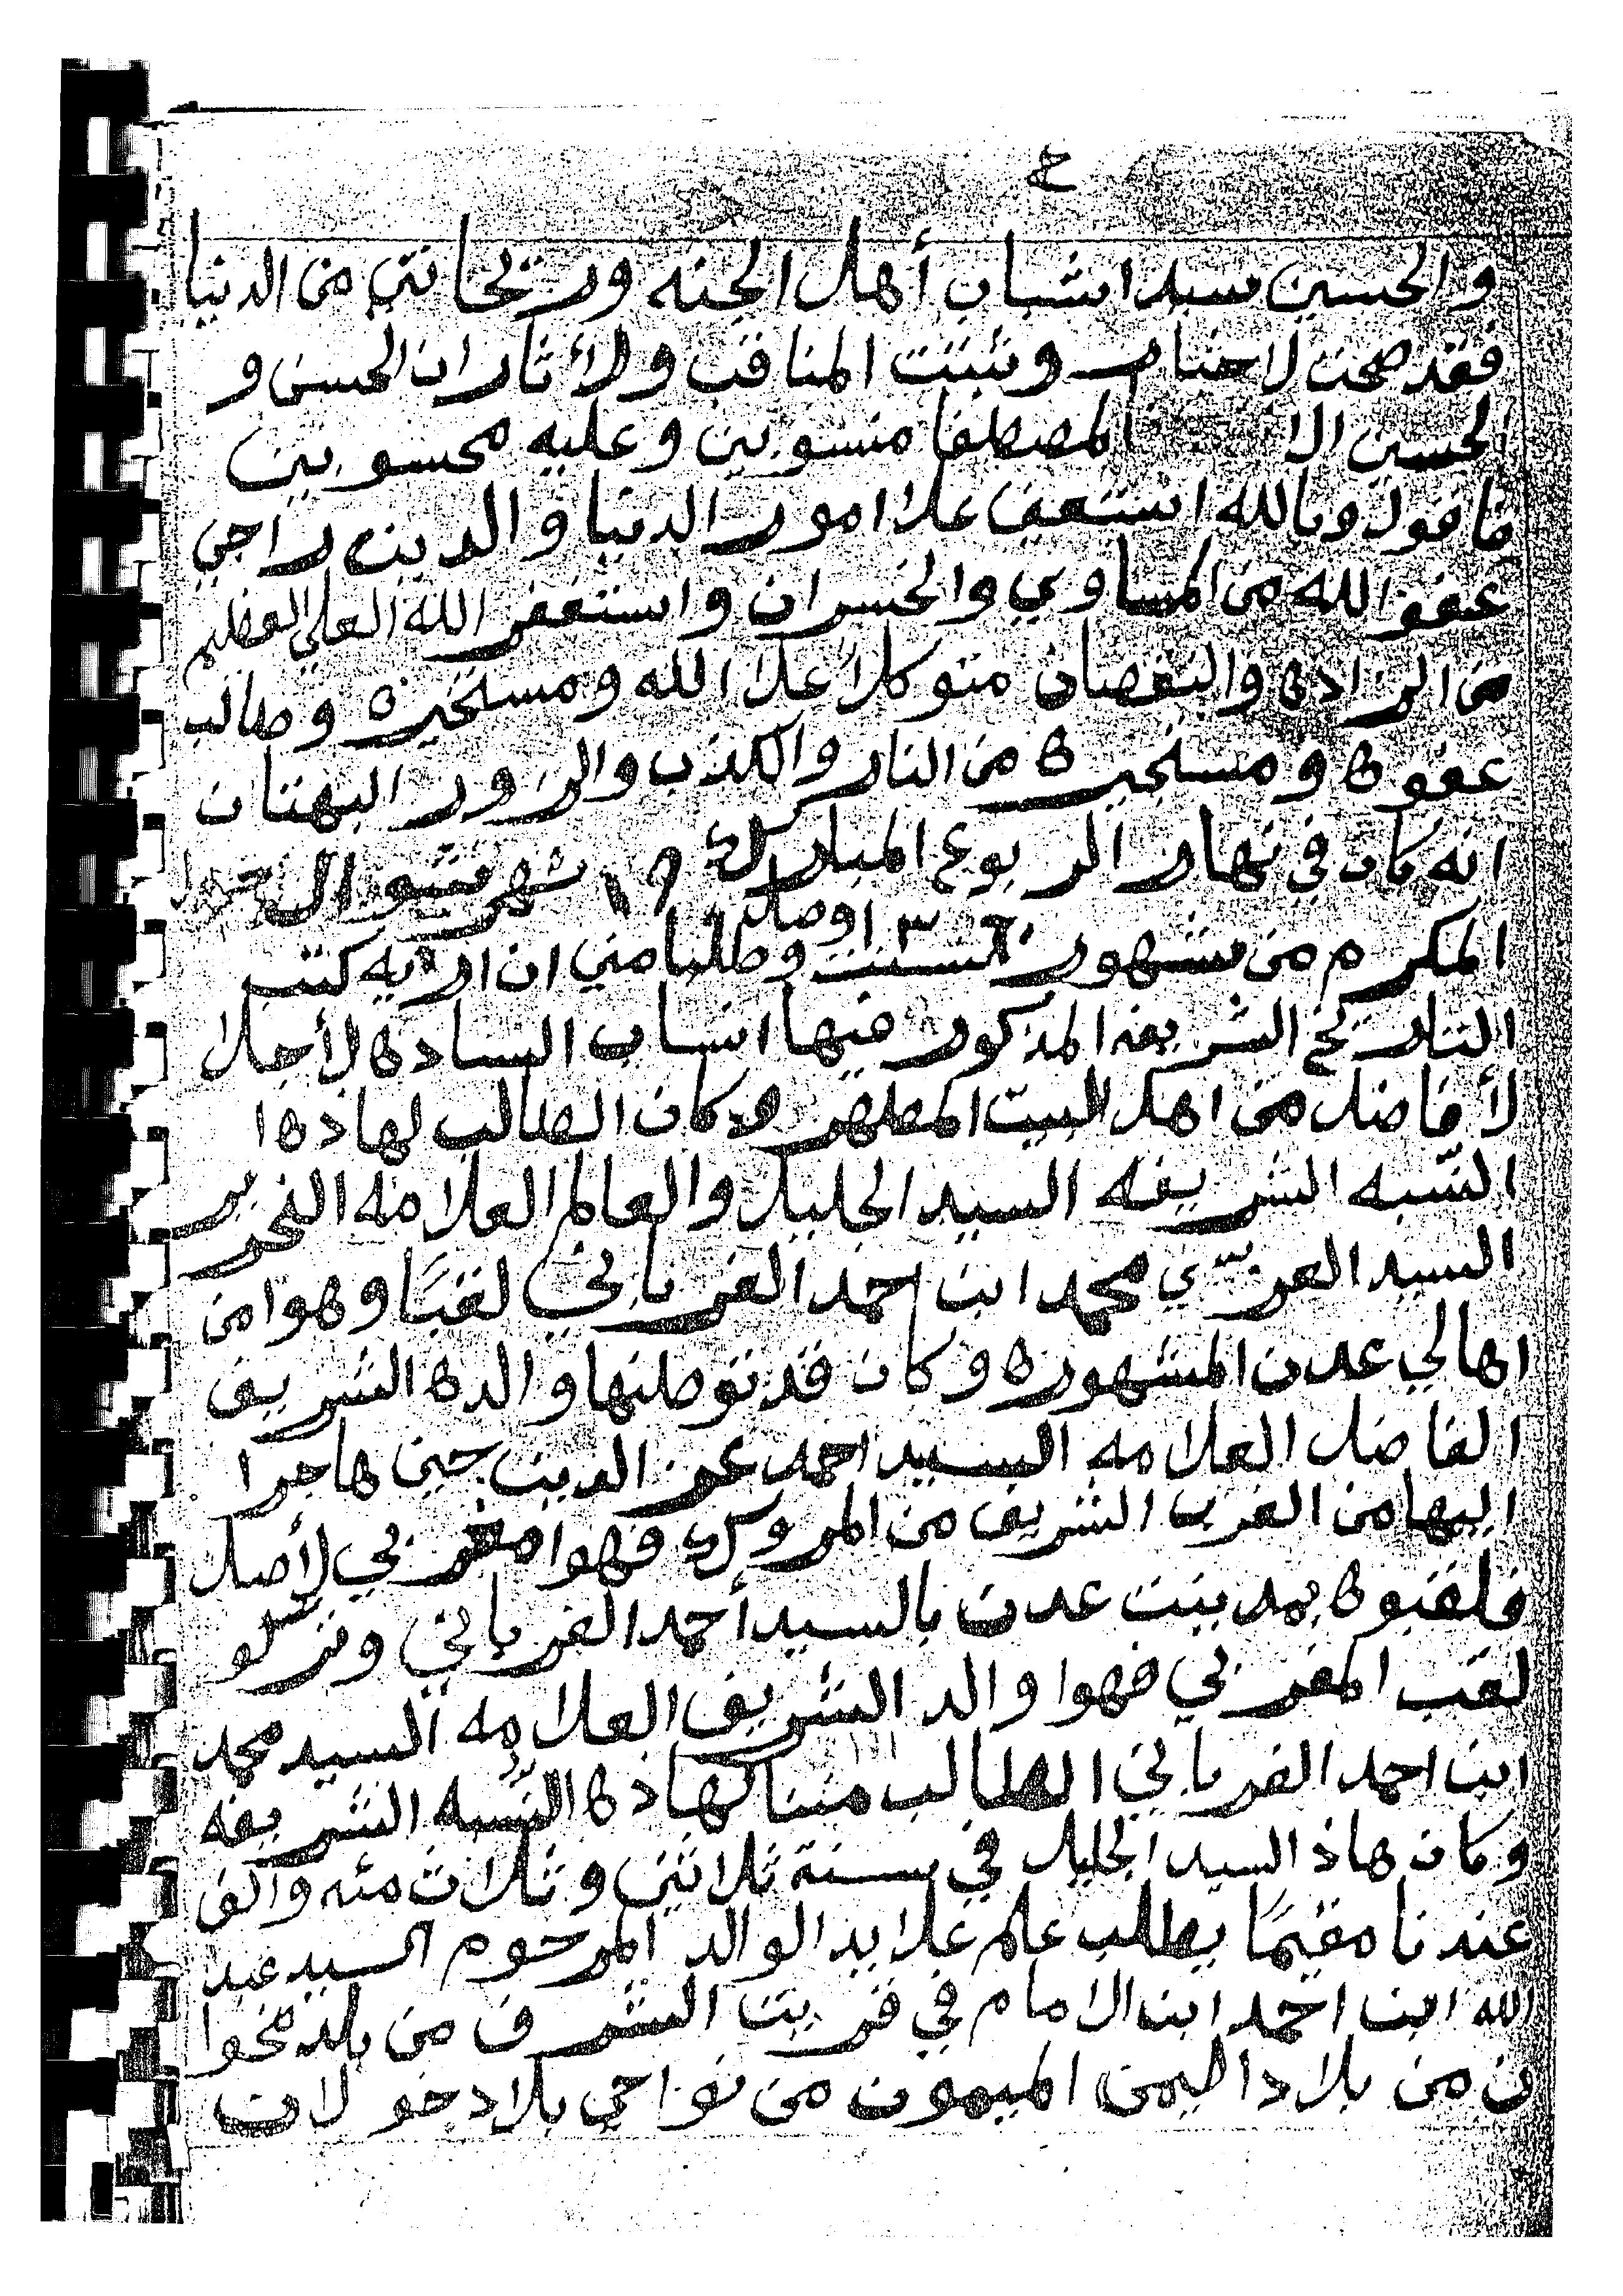 والحسين سيدا شباب أهل الجنه وريحانتي من الدنيا
فقد صحت لاخبار وثبتت المناقب ولاثار ان الحسن و
الحسين الا المصطفا منسوبين وعليه محسوبين
فاقول وبالله استعين علا امور الدنيا والدين راجي
عفو الله من المساوي والخسران واستغفر الله العلي العظيم
من الزاده والنقصان متوكلاً علا الله ومستخيره وطالب
عفوه ومستجيره من النار والكذب والزور البهتان
انه كان في نهار الربوع المبارك ١٩ شهر شوال
المكرم من شهور سنت وطلبا مني ان اريه كتب
التاريخ الشريفه المذكور فيها انساب الساده لأجلا
لأفاضل من اهل البيت المطهر وكان الطالب لهاده ا
النّسبه الشريفه السيد الجليل والعالم العلامه النحرير
السيد العزي محمد ابن احمد الغرباني لقبًا وهوا من
اهالي عدن المشهوره وكان قد توطنها والده الشريف
الفاضل العلامه السيد احمد عز الدين حين هاجرا
اليها من الغرب الشريف من المروك فهوا مغربي لأصل
فلقبوه بمدينت عدن بالسيد أحمد الغرباني وتركو
لقب المغربي فهوا والد الشريف العلامه السيد محمد
ابن احمد الغرباني الطالب مننا لهاده النّسبه الشريفه
وكان هاذ السيد الجليل في سنة ثلاثين وثلاث مئه والف
عندنا مقيمًا يطلب علم علا يد الوالد المرحوم السيد عبد
الله ابن احمد ابن الامام في قريت الشرف من بلاد نخوا
ن من بلاد اليمن الميمون من نواحي بلاد خولان